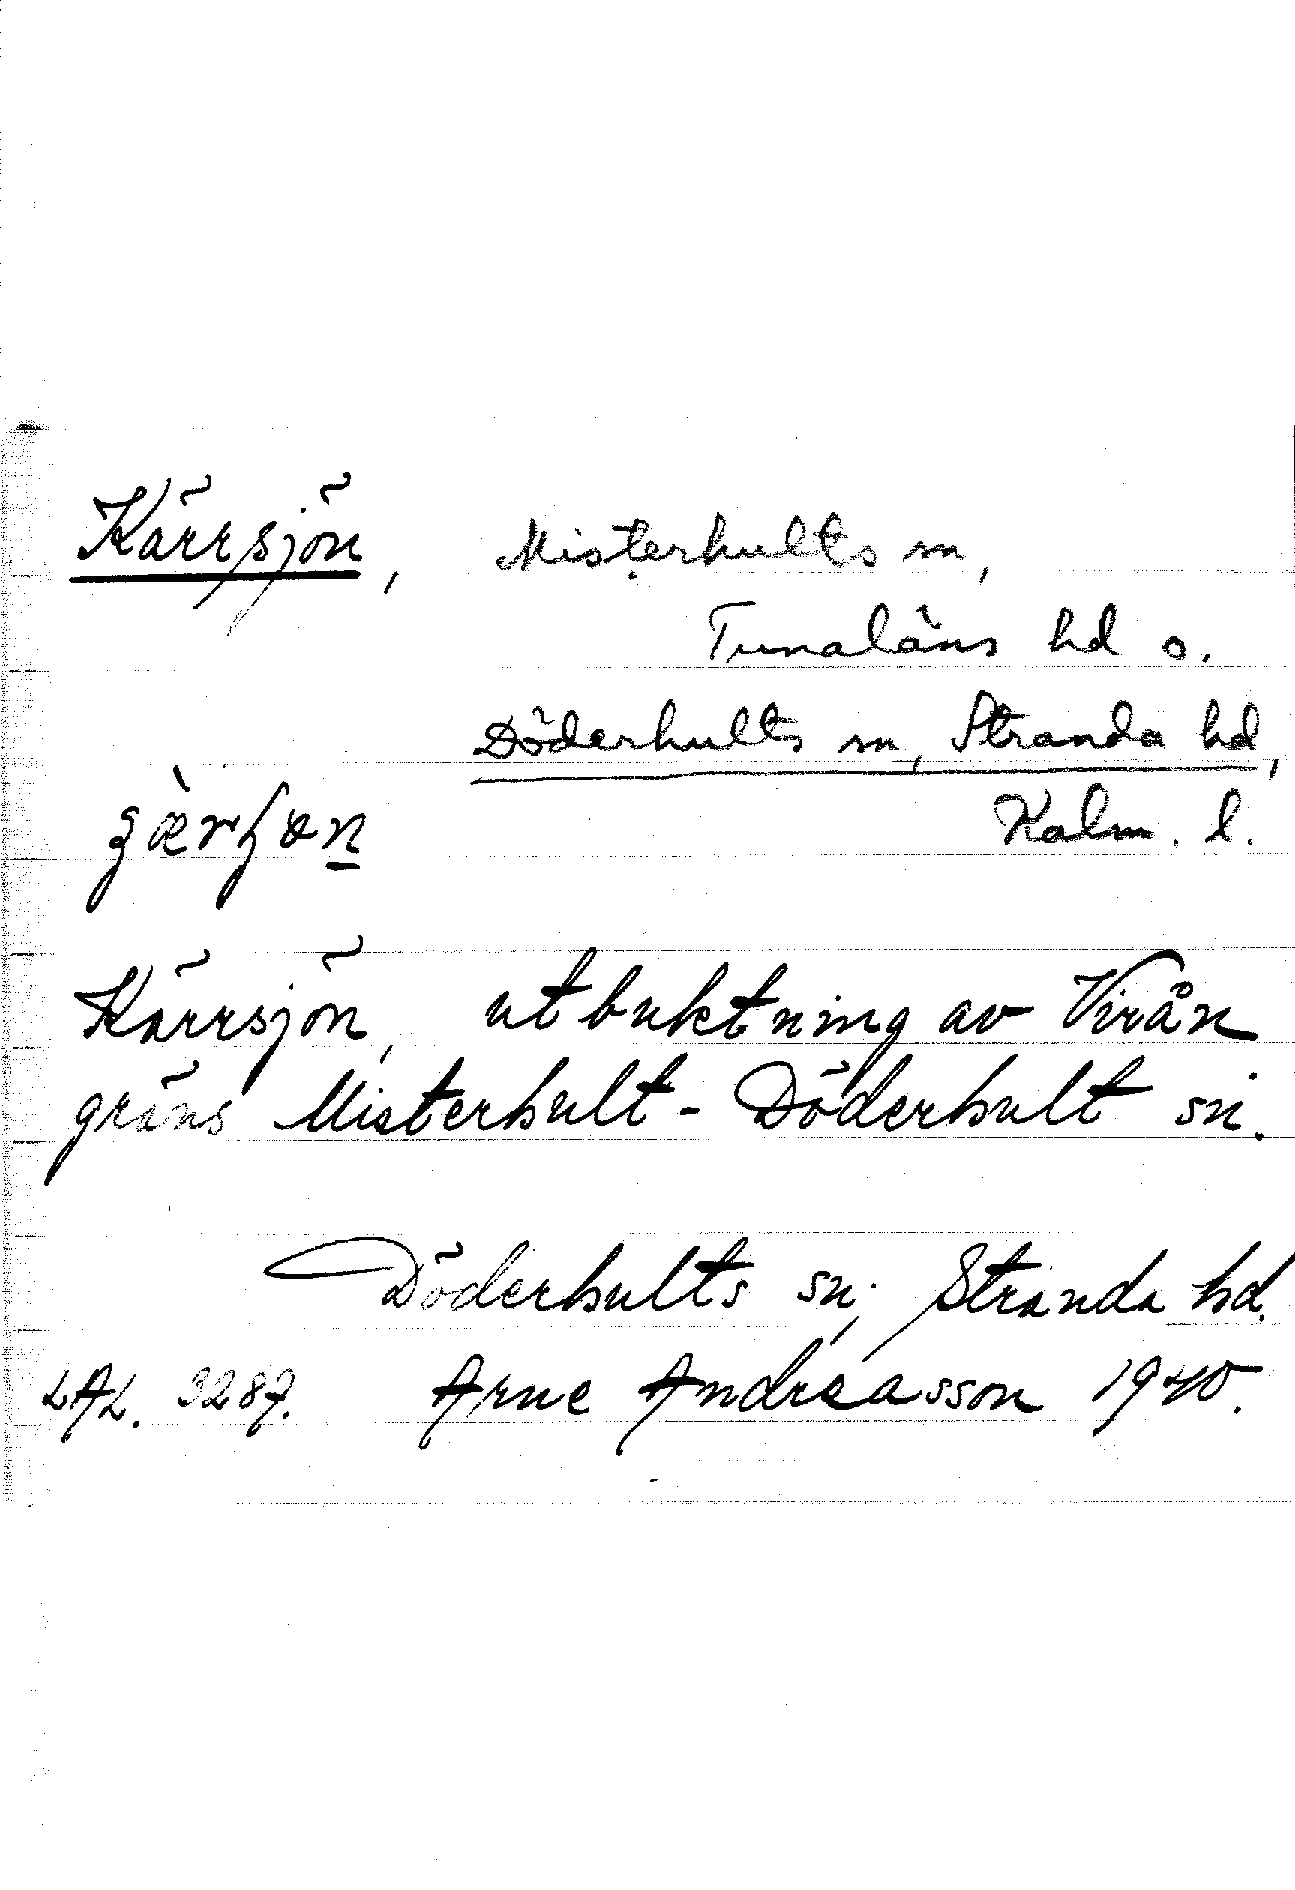 Kärrsjön, Misterhults sn,
Tunaläns hd o.
Döderhults sn, Stranda hd,
Kalm. l.
Kärrsjön, utbuktning av Virån
gräns Misterhult - Döderhult sn.
Döderhults sn; Stranda hd.
LAL. 3287. Arne Andreasson 1940.